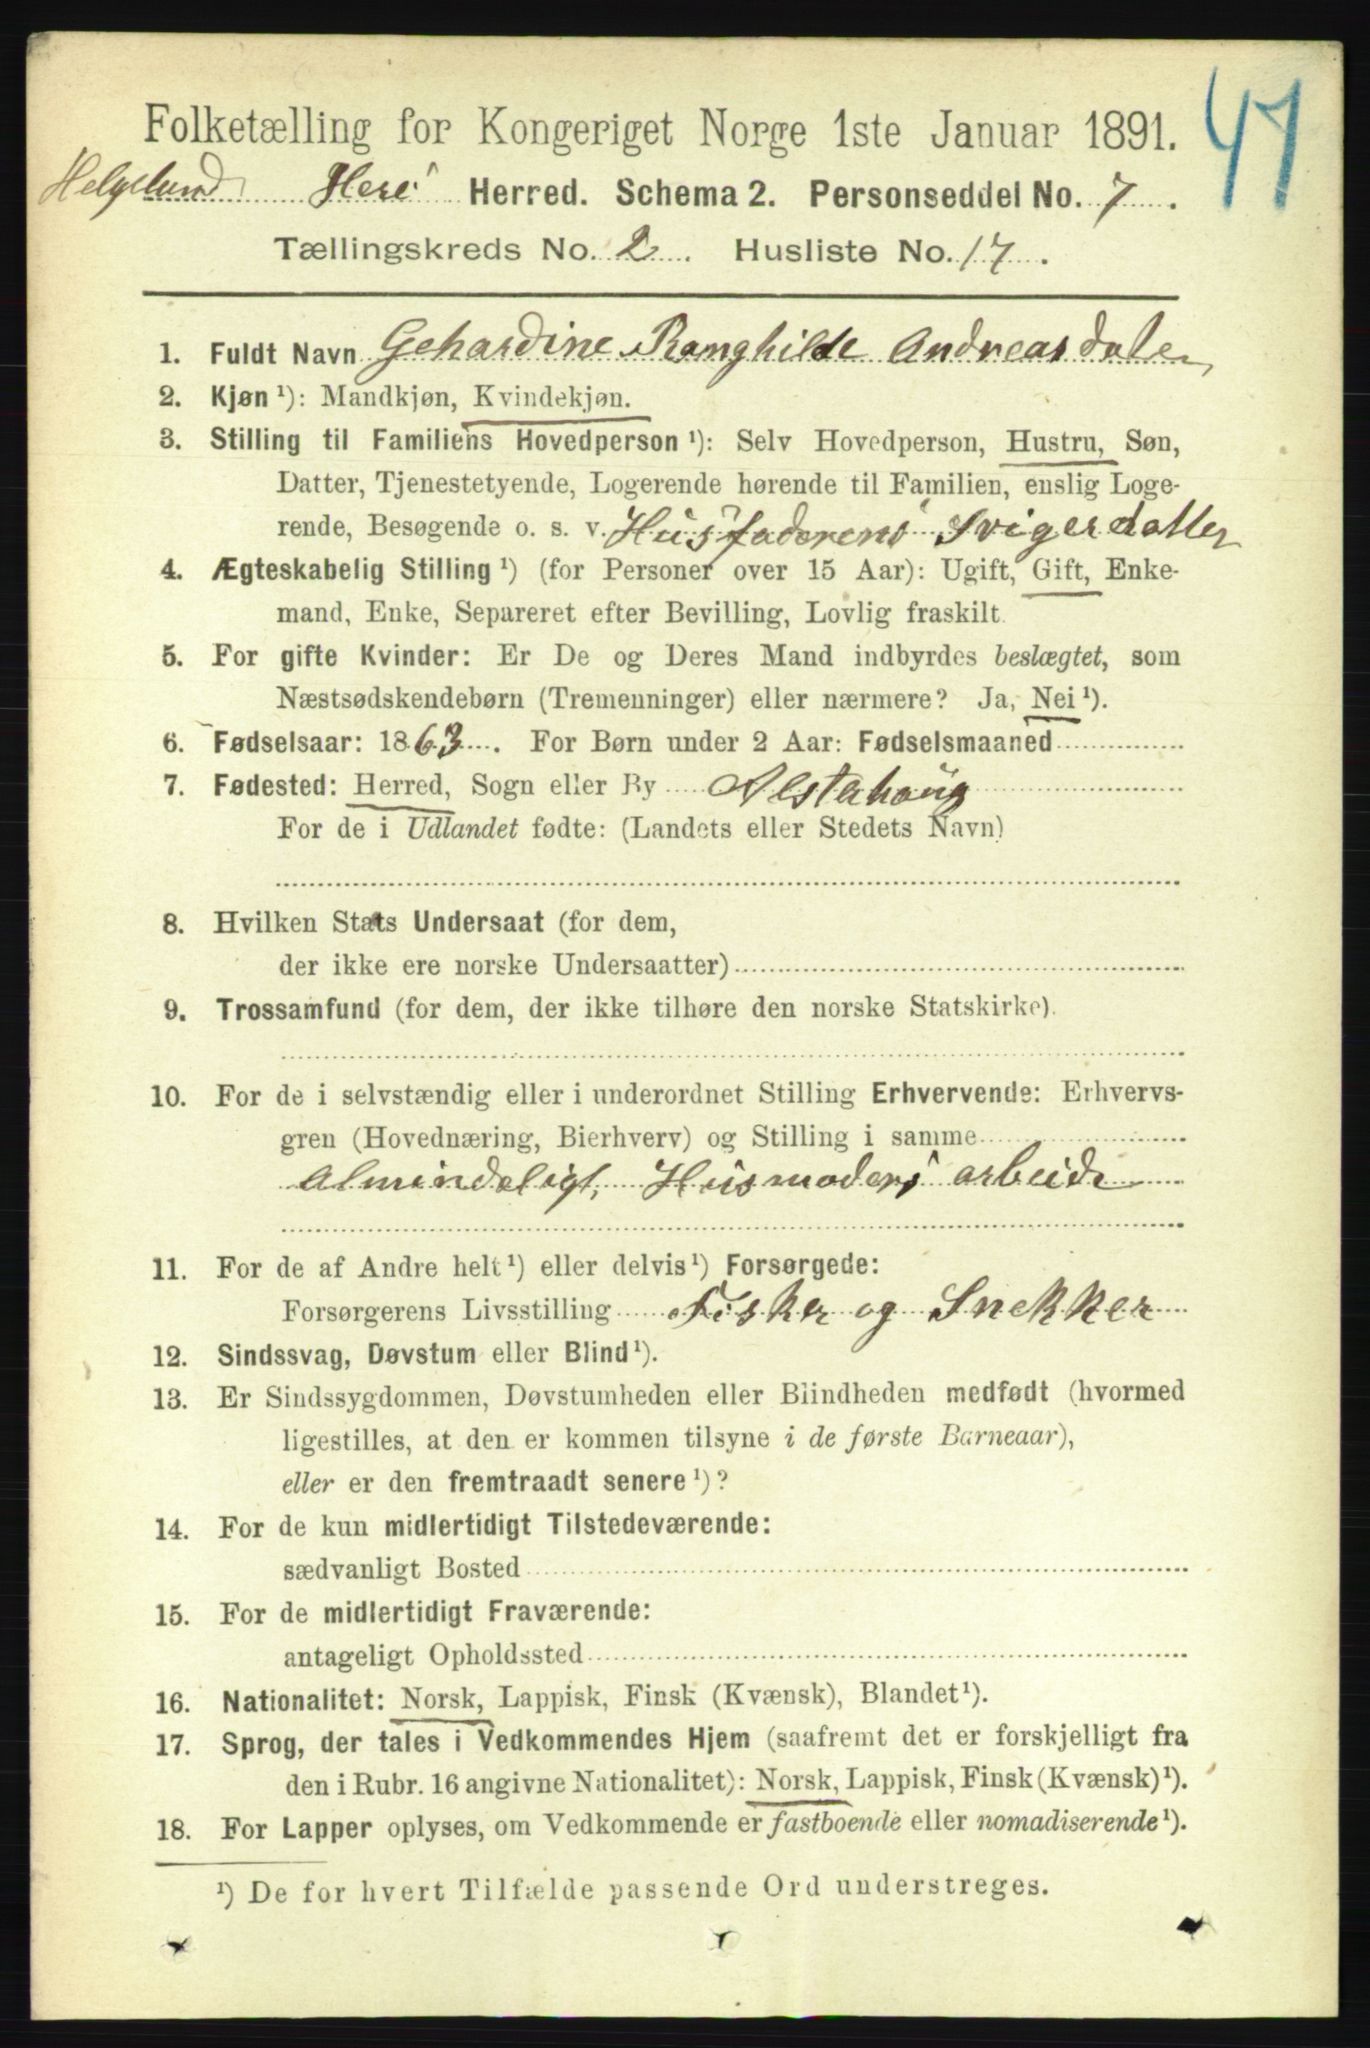 47
Folketælling for Kongeriget Norge 1ste Januar 1891.
Helgeland Herø Herred. Schema 2. Personseddel No. 7.
Tællingskreds No. 2. Husliste No. 17.
1. Fuldt Navn Gehardine Ramghilde Andreasdater
2. Kjøn ¹): Mandkjøn, Kvindekjøn.
3. Stilling til Familiens Hovedperson ¹): Selv Hovedperson, Hustru, Søn,
Datter, Tjenestetyende, Logerende hørende til Familien, enslig Loge-
rende, Besøgende o. s. v. Husfaderens Svigerdatter
4. Ægteskabelig Stilling ¹) (for Personer over 15 Aar): Ugift, Gift, Enke-
mand, Enke, Separeret efter Bevilling, Lovlig fraskilt.
5. For gifte Kvinder: Er De og Deres Mand indbyrdes beslægtet, som
Næstsødskendebørn (Tremenninger) eller nærmere? Ja, Nei ¹).
6. Fødselsaar: 1863. For Børn under 2 Aar: Fødselsmaaned
7. Fødested: Herred, Sogn eller By Alstahoug
For de i Udlandet fødte: (Landets eller Stedets Navn)
8. Hvilken Stats Undersaat (for dem,
der ikke ere norske Undersaatter)
9. Trossamfund (for dem, der ikke tilhøre den norske Statskirke).
10. For de i selvstændig eller i underordnet Stilling Erhvervende: Erhvervs-
gren (Hovednæring, Bierhverv) og Stilling i samme
Almindeligt, Husmoders arbeide
11. For de af Andre helt ¹) eller delvis ¹) Forsørgede:
Forsørgerens Livsstilling Fisker og Snekker
12. Sindssvag, Døvstum eller Blind ¹).
13. Er Sindssygdommen, Døvstumheden eller Blindheden medfødt (hvormed
ligestilles, at den er kommen tilsyne i de første Barneaar),
eller er den fremtraadt senere ¹)?
14. For de kun midlertidigt Tilstedeværende:
sædvanligt Bosted
15. For de midlertidigt Fraværende:
antageligt Opholdssted
16. Nationalitet: Norsk, Lappisk, Finsk (Kvænsk), Blandet ¹).
17. Sprog, der tales i Vedkommendes Hjem (saafremt det er forskjelligt fra
den i Rubr. 16 angivne Nationalitet): Norsk, Lappisk, Finsk (Kvænsk) ¹).
18. For Lapper oplyses, om Vedkommende er fastboende eller nomadiserende ¹).
¹) De for hvert Tilfælde passende Ord understreges.